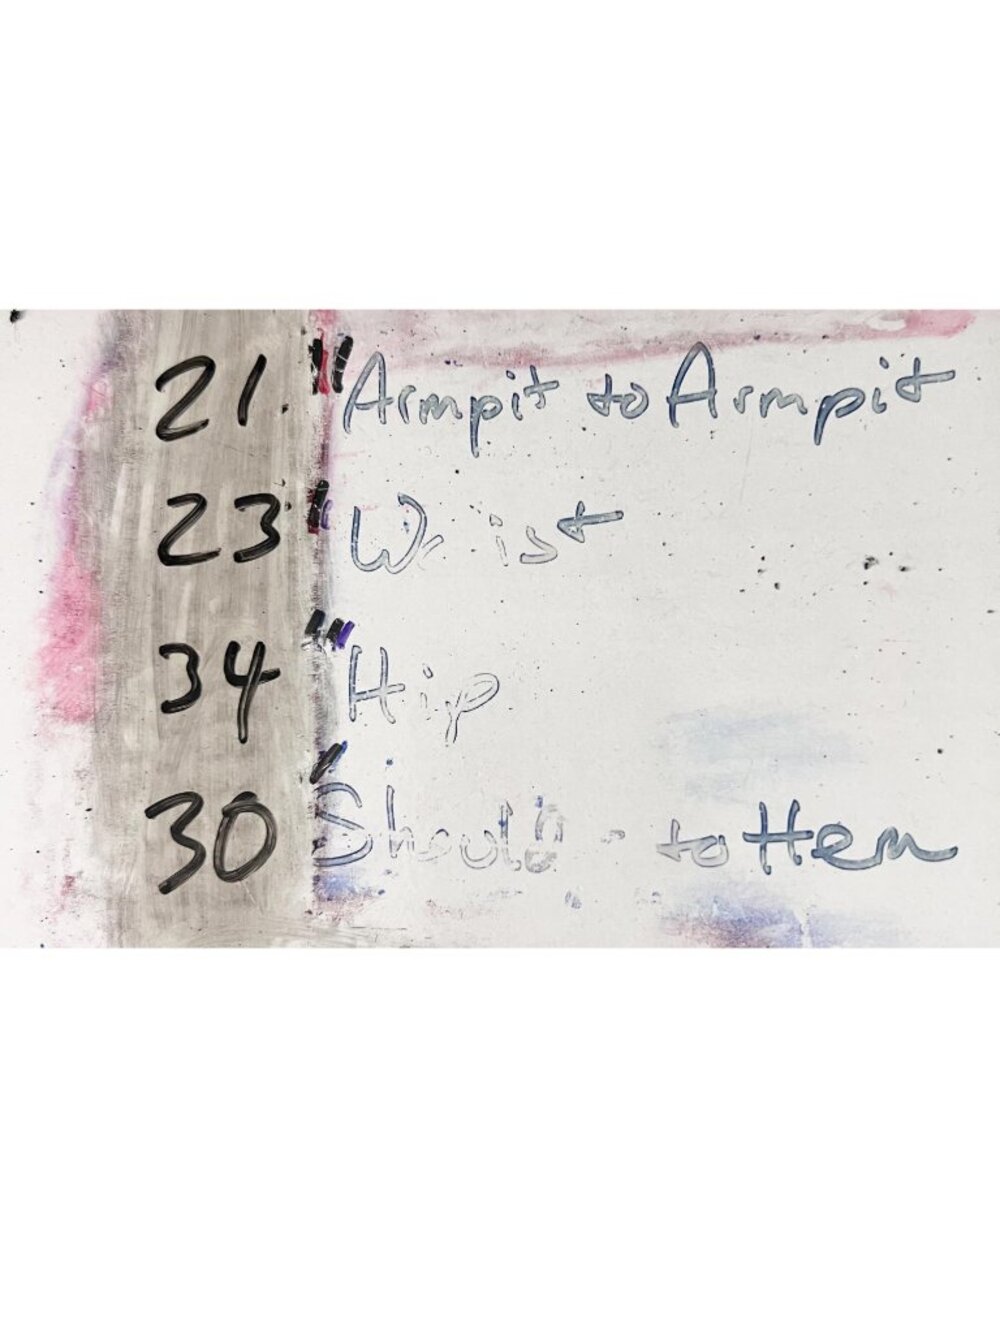 21." Armpit to Armpit
23" Waist
34" Hip
30" to Hem